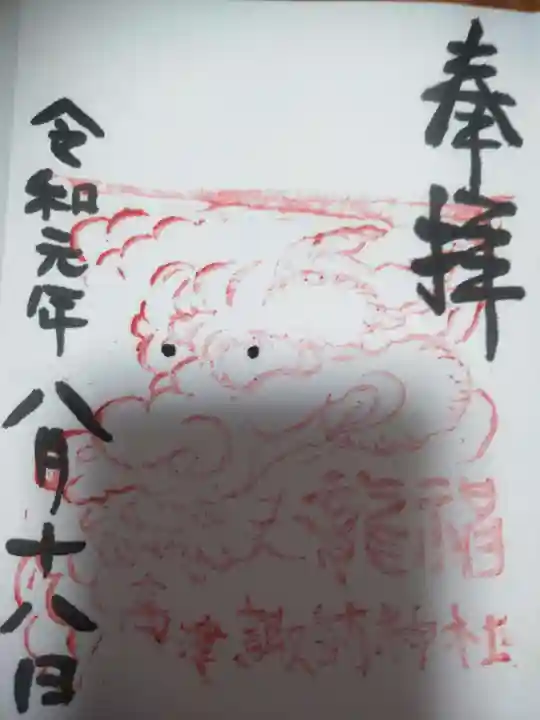 奉拝
瀧福
諏訪神社
令和元年
八月十八日